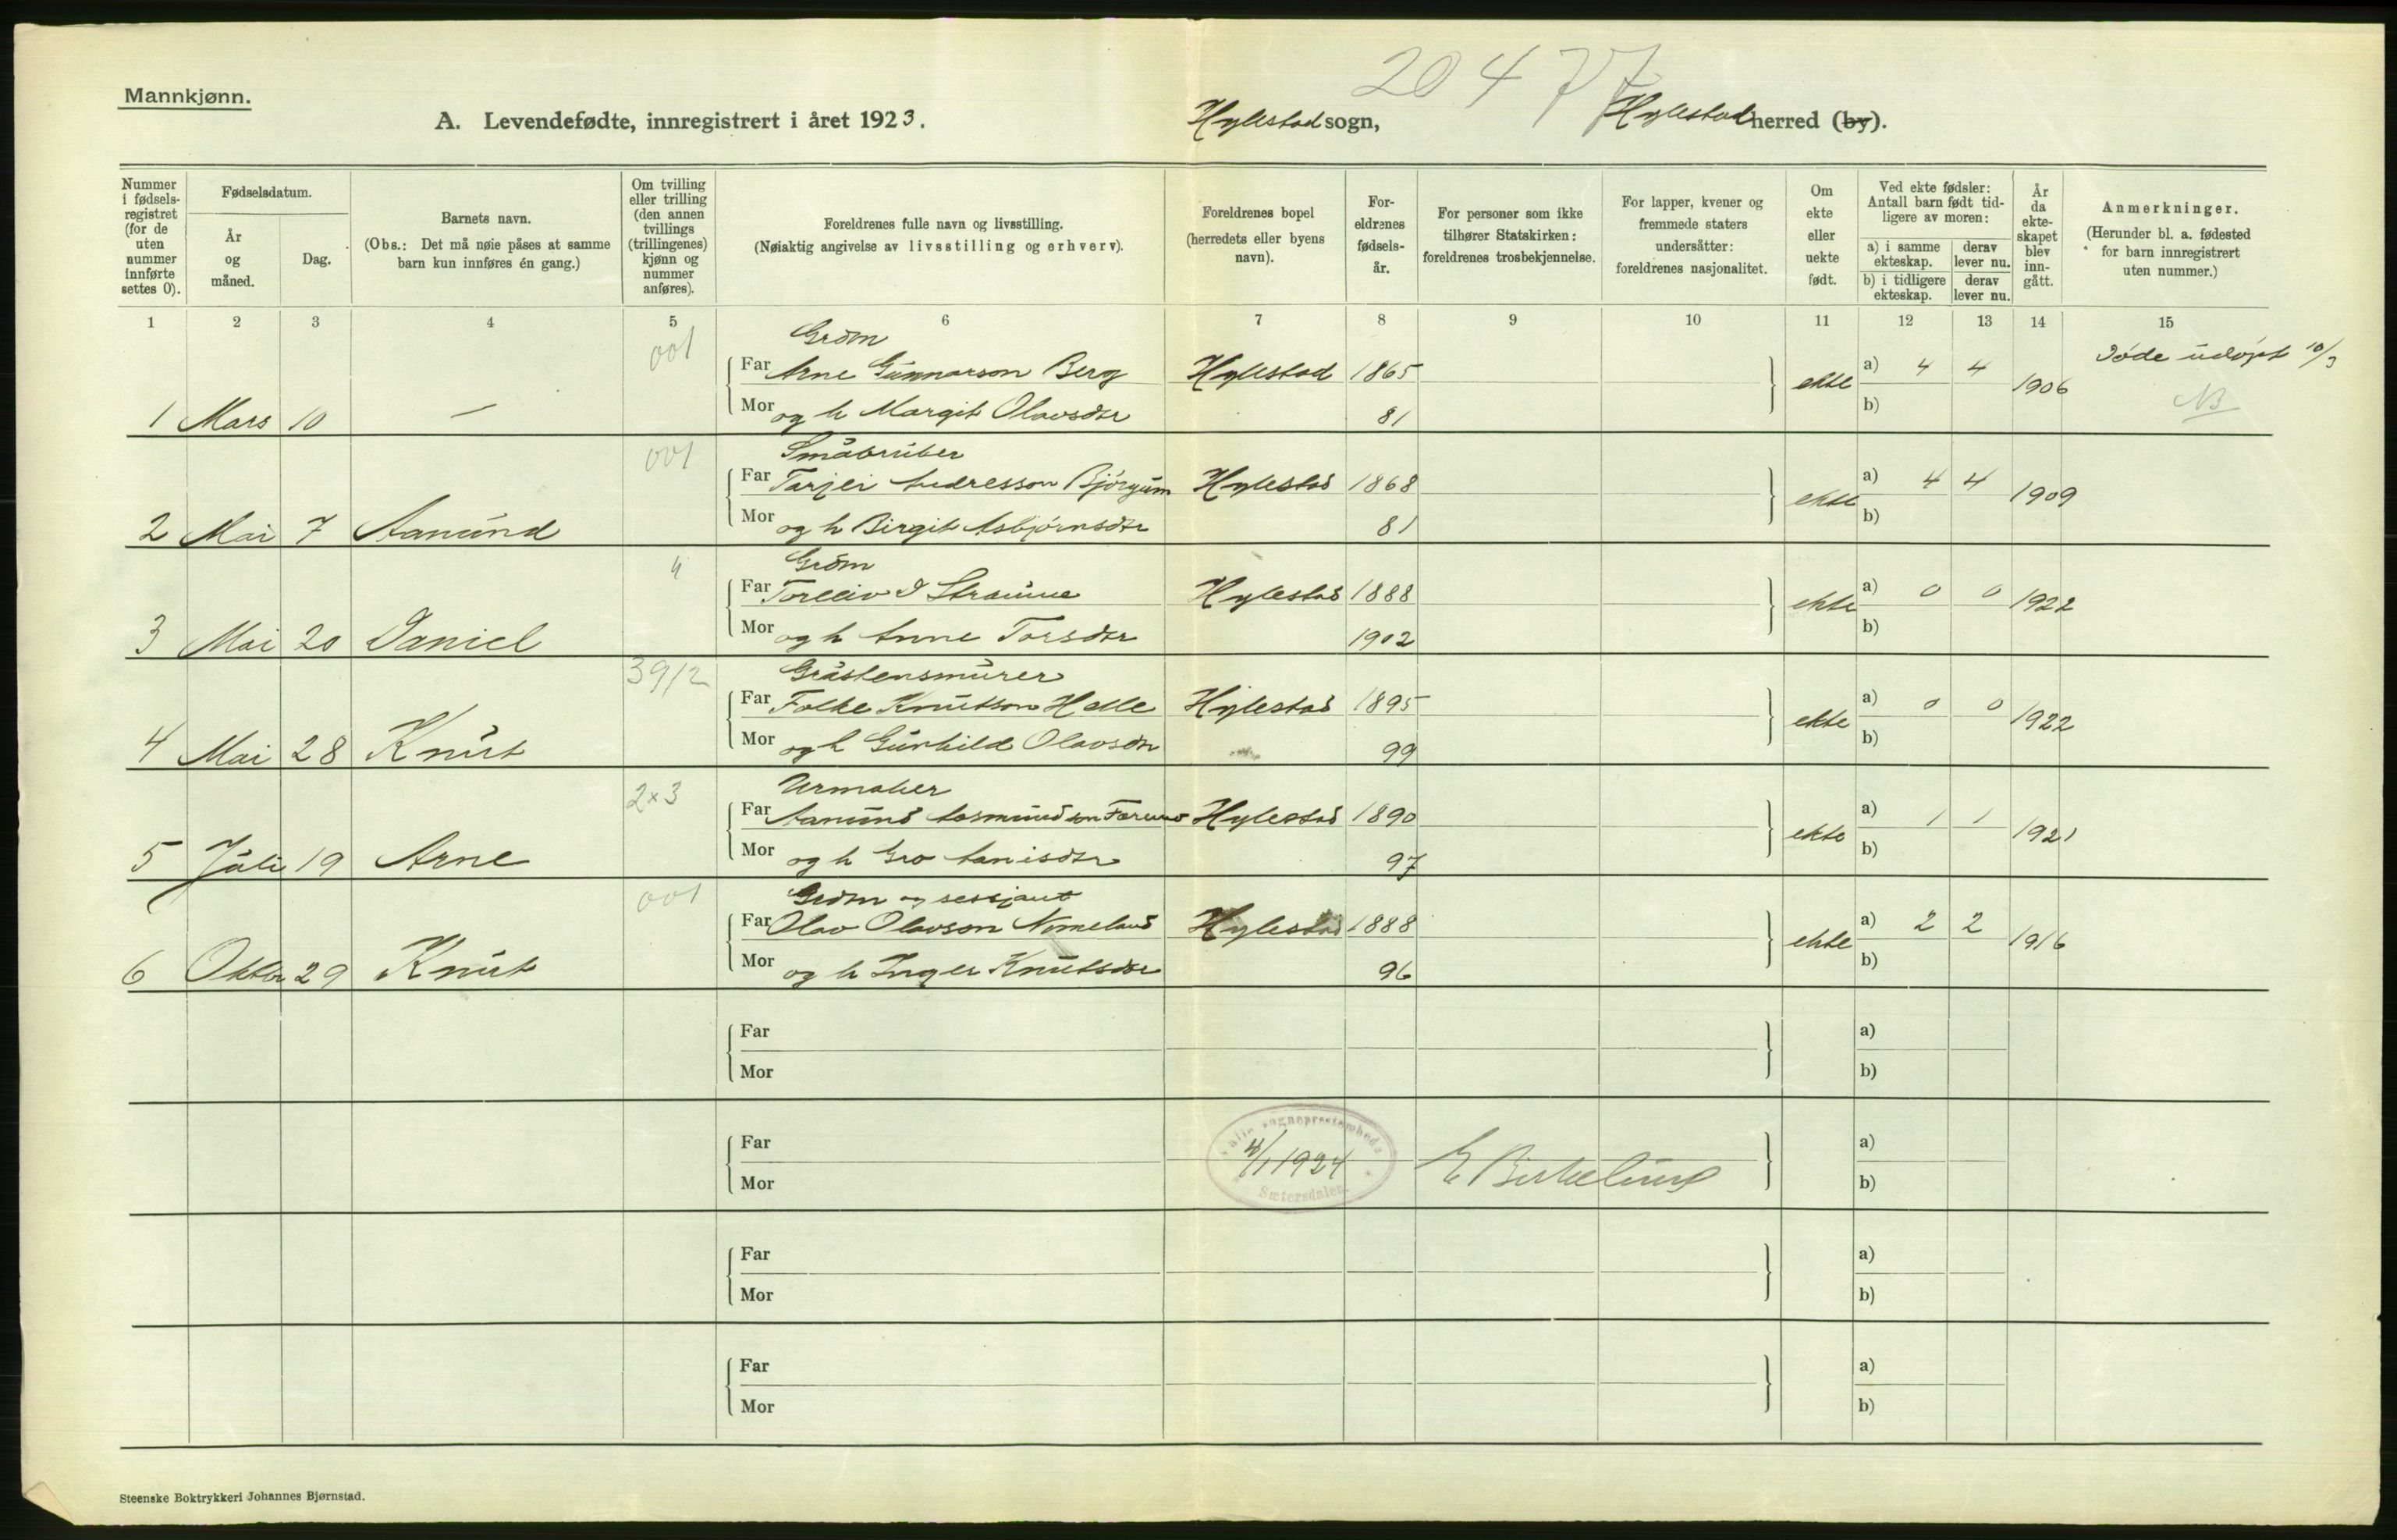 20 4 77
Mannkjønn.
A. Levendefødte, innregistrert i året 1923. Hylestad sogn, Hylestad herred (by).
Nummer i fødselsregistret (for de uten nummer innførte settes 0). Fødselsdatum. År og måned. Dag. Barnets navn. (Obs.: Det må nøie påses at samme barn kun innføres én gang.) Om tvilling eller trilling (den annen tvillings (trillingenes) kjønn og nummer anføres). Foreldrenes fulle navn og livsstilling. (Nøiaktig angivelse av livsstilling og erhverv). Foreldrenes bopel (herredets eller byens navn). Foreldrenes fødselsår. For personer som ikke tilhører Statskirken: foreldrenes trosbekjennelse. For lapper, kvener og fremmede staters undersåtter: foreldrenes nasjonalitet. Om ekte eller uekte født. Ved ekte fødsler: Antall barn født tidligere av moren: a) i samme ekteskap. derav lever nu. b) i tidligere ekteskap. derav lever nu. År da ekteskapet blev inngått. Anmerkninger. (Herunder bl. a. fødested for barn innregistrert uten nummer.)
1 2 3 4 5 6 7 8 9 10 11 12 13 14 15
001 Grdm
Far Arne Gunnarson Berg Hylestad 1865 ekte a) 4 4 1906 Døde udøpt 10/3
1 Mars 10 — Mor og h Margit Olavsdtr 81 b) NB
001 Småbruker
Far Tarjei Andresson Bjørgum Hylestad 1868 ekte a) 4 4 1909
2 Mai 7 Aanund Mor og h Birgit Asbjørnsdtr 81 b)
4 Grdm
Far Torleiv D Straume Hylestad 1888 ekte a) 0 0 1922
3 Mai 20 Daniel Mor og h Anne Torsdtr 1902 b)
39/2 Gråstensmurer
Far Folke Knutson Helle Hylestad 1895 ekte a) 0 0 1922
4 Mai 28 Knut Mor og h Gunhild Olavsdtr 99 b)
2x3 Urmaker
Far Aanund Aasmundson Hylestad 1890 ekte a) 1 1 1921
5 Juli 19 Arne Mor og h Gro 97 b)
001 Grdm og sersjant
Far Olav Olavson Nomeland Hylestad 1888 ekte a) 2 2 1916
6 Oktbr 29 Knut Mor og h Inger Knutsdtr 96 b)
Far a)
Mor b)
Valle sogneprestembede
Far 4/1 1924 E Birkelund a)
Mor Sætersdalen. b)
Far a)
Mor b)
Far a)
Mor b)
Steenske Boktrykkeri Johannes Bjørnstad.